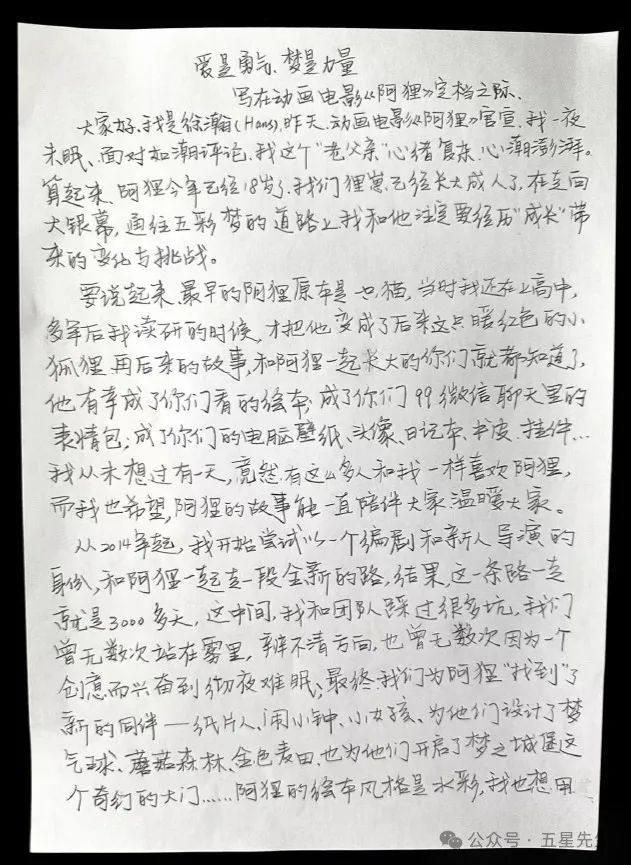 爱是勇气、梦是力量
写在动画电影《阿狸》定档之际.
大家好、我是徐瀚(Hans),昨天、动画电影《阿狸》官宣,我一夜
未眠、面对如潮评论,我这个“老父亲”心绪复杂、心潮澎湃。
算起来、阿狸今年已经18岁了、我们狸崽已经长大成人了,在走向
大银幕,通往五彩梦的道路上,我和他注定要经历“成长”带
来的变化与挑战。
要说起来、最早的阿狸原本是一只猫,当时我还在上高中,
多年后我读研的时候,才把他变成了后来这只暖红色的小
狐狸,再后来的故事,和阿狸一起长大的你们就都知道了,
他有幸成了你们看的绘本;成了你们99微信聊天里的
表情包;成了你们的电脑壁纸、头像、日记本、书皮、挂件...
我从未想过有一天,竟然有这么多人和我一样喜欢阿狸,
而我也希望,阿狸的故事能一直陪伴大家、温暖大家。
从2014年起,我开始尝试以一个编剧和新人导演的
身份,和阿狸一起走一段全新的路,结果,这一条路一走
就是3000多天,这中间,我和团队踩过很多坑,我们
曾无数次站在雾里,辨不清方向,也曾无数次因为一个
创意而兴奋到彻夜难眠;最终我们为阿狸“找到”了
新的同伴——纸片人、闹小钟、小女孩、为他们设计了梦
气球、蘑菇森林、金色麦田、也为他们开启了梦之城堡这
个奇幻的大门……阿狸的绘本风格是水彩,我也想用
公众号·五星先生